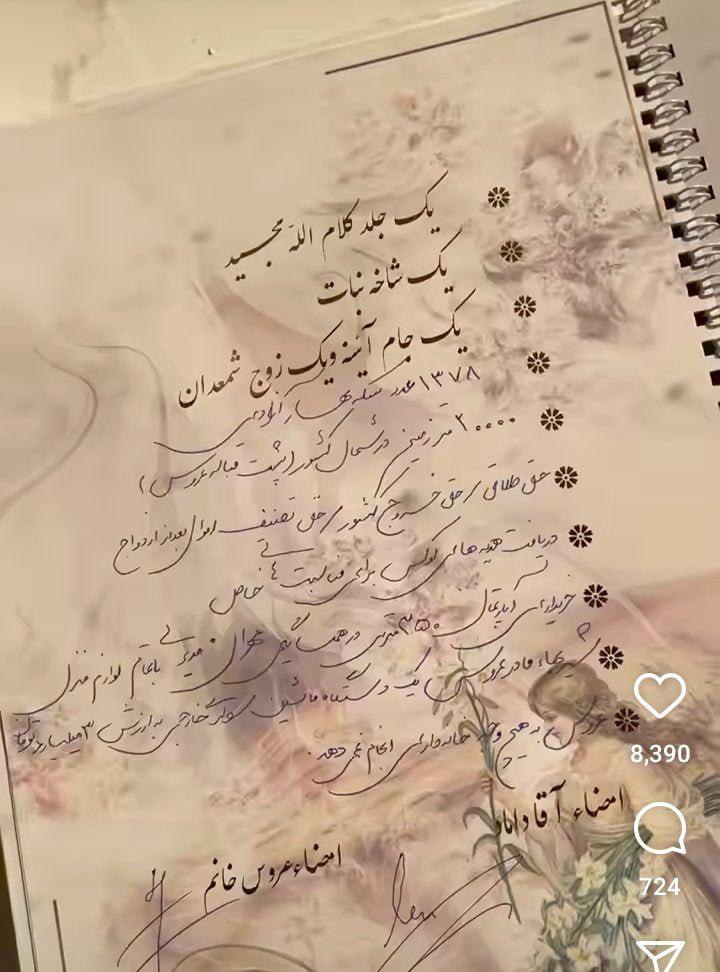 یک جلد کلام الله مجید
یک شاخه نبات
یک جام آینه و یک زوج شمعدان
۱۳۷۸ عدد سکه بهار آزادی
۲۰۰۰۰ متر زمین در شمال کشور (پشت قباله عروس)
حق طلاق / حق خروج کشور / حق تصنیف اموال بعد از ازدواج
دریافت هدیه های لوکس برای مناسبت های خاص
خریداری آپارتمان ۳۵۰ متری در همت گیتی تهران با تمام لوازم منزل
شیربهاء مادر عروس یک دستگاه ماشین سوگلد خارجی به ارزش ۳ میلیارد تومان
عروس به هیچ وجه خانه‌داری انجام نمی دهد.
امضاء آقا داماد
امضاء عروس خانم
8,390
724